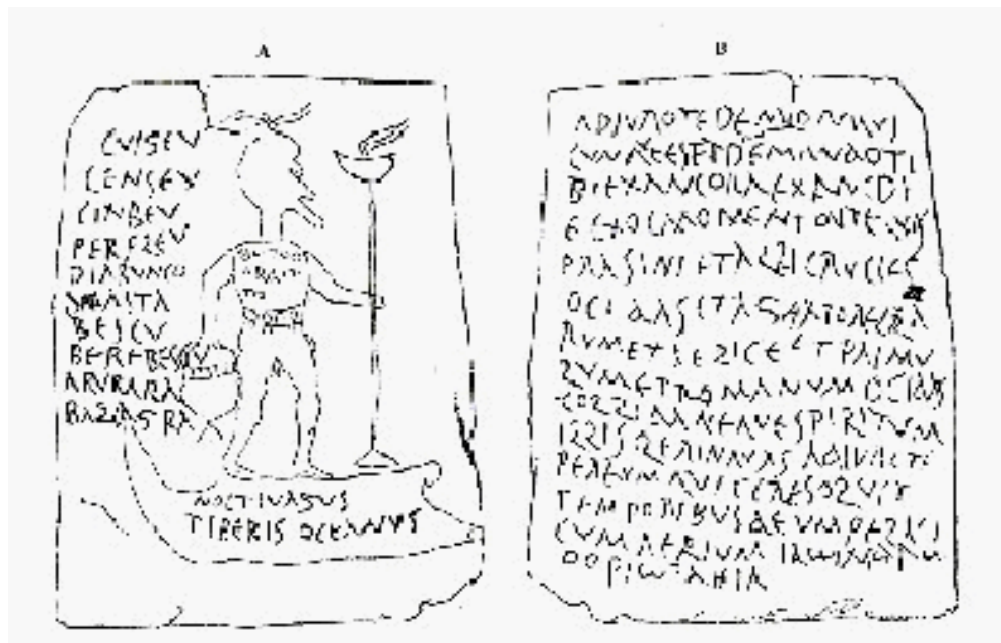 A
CVIGEV
CENSEV
CINBEV
PERFLEV
DIARVNCO
DEASTA
BESCV
BEREBESCV
ARVRARA
BAZAGRA
NOCTIVAGVS
TIBERIS OCEANVS
B
ADIVRO TE DEMON QVI
CVNQVE ES ET DEMANDO TI
BI EX ANC ORA EX ANC DI
E EX OC MOMENTO VT EQVOS
PRASINI ET ALBI CRVCIES
OCIDAS ET AGITATORES CLA
RVM ET FELICE ET PRIMV
LVM ET ROMANVM OCIDAS
COLLIDA NEQVE SPIRITVM
ILLIS RELINQVAS ADIVRO TE
PER EVM QVI TE RESOLVIT
TEMPORIBVS DEVM PELAGI
CVM AERIVM